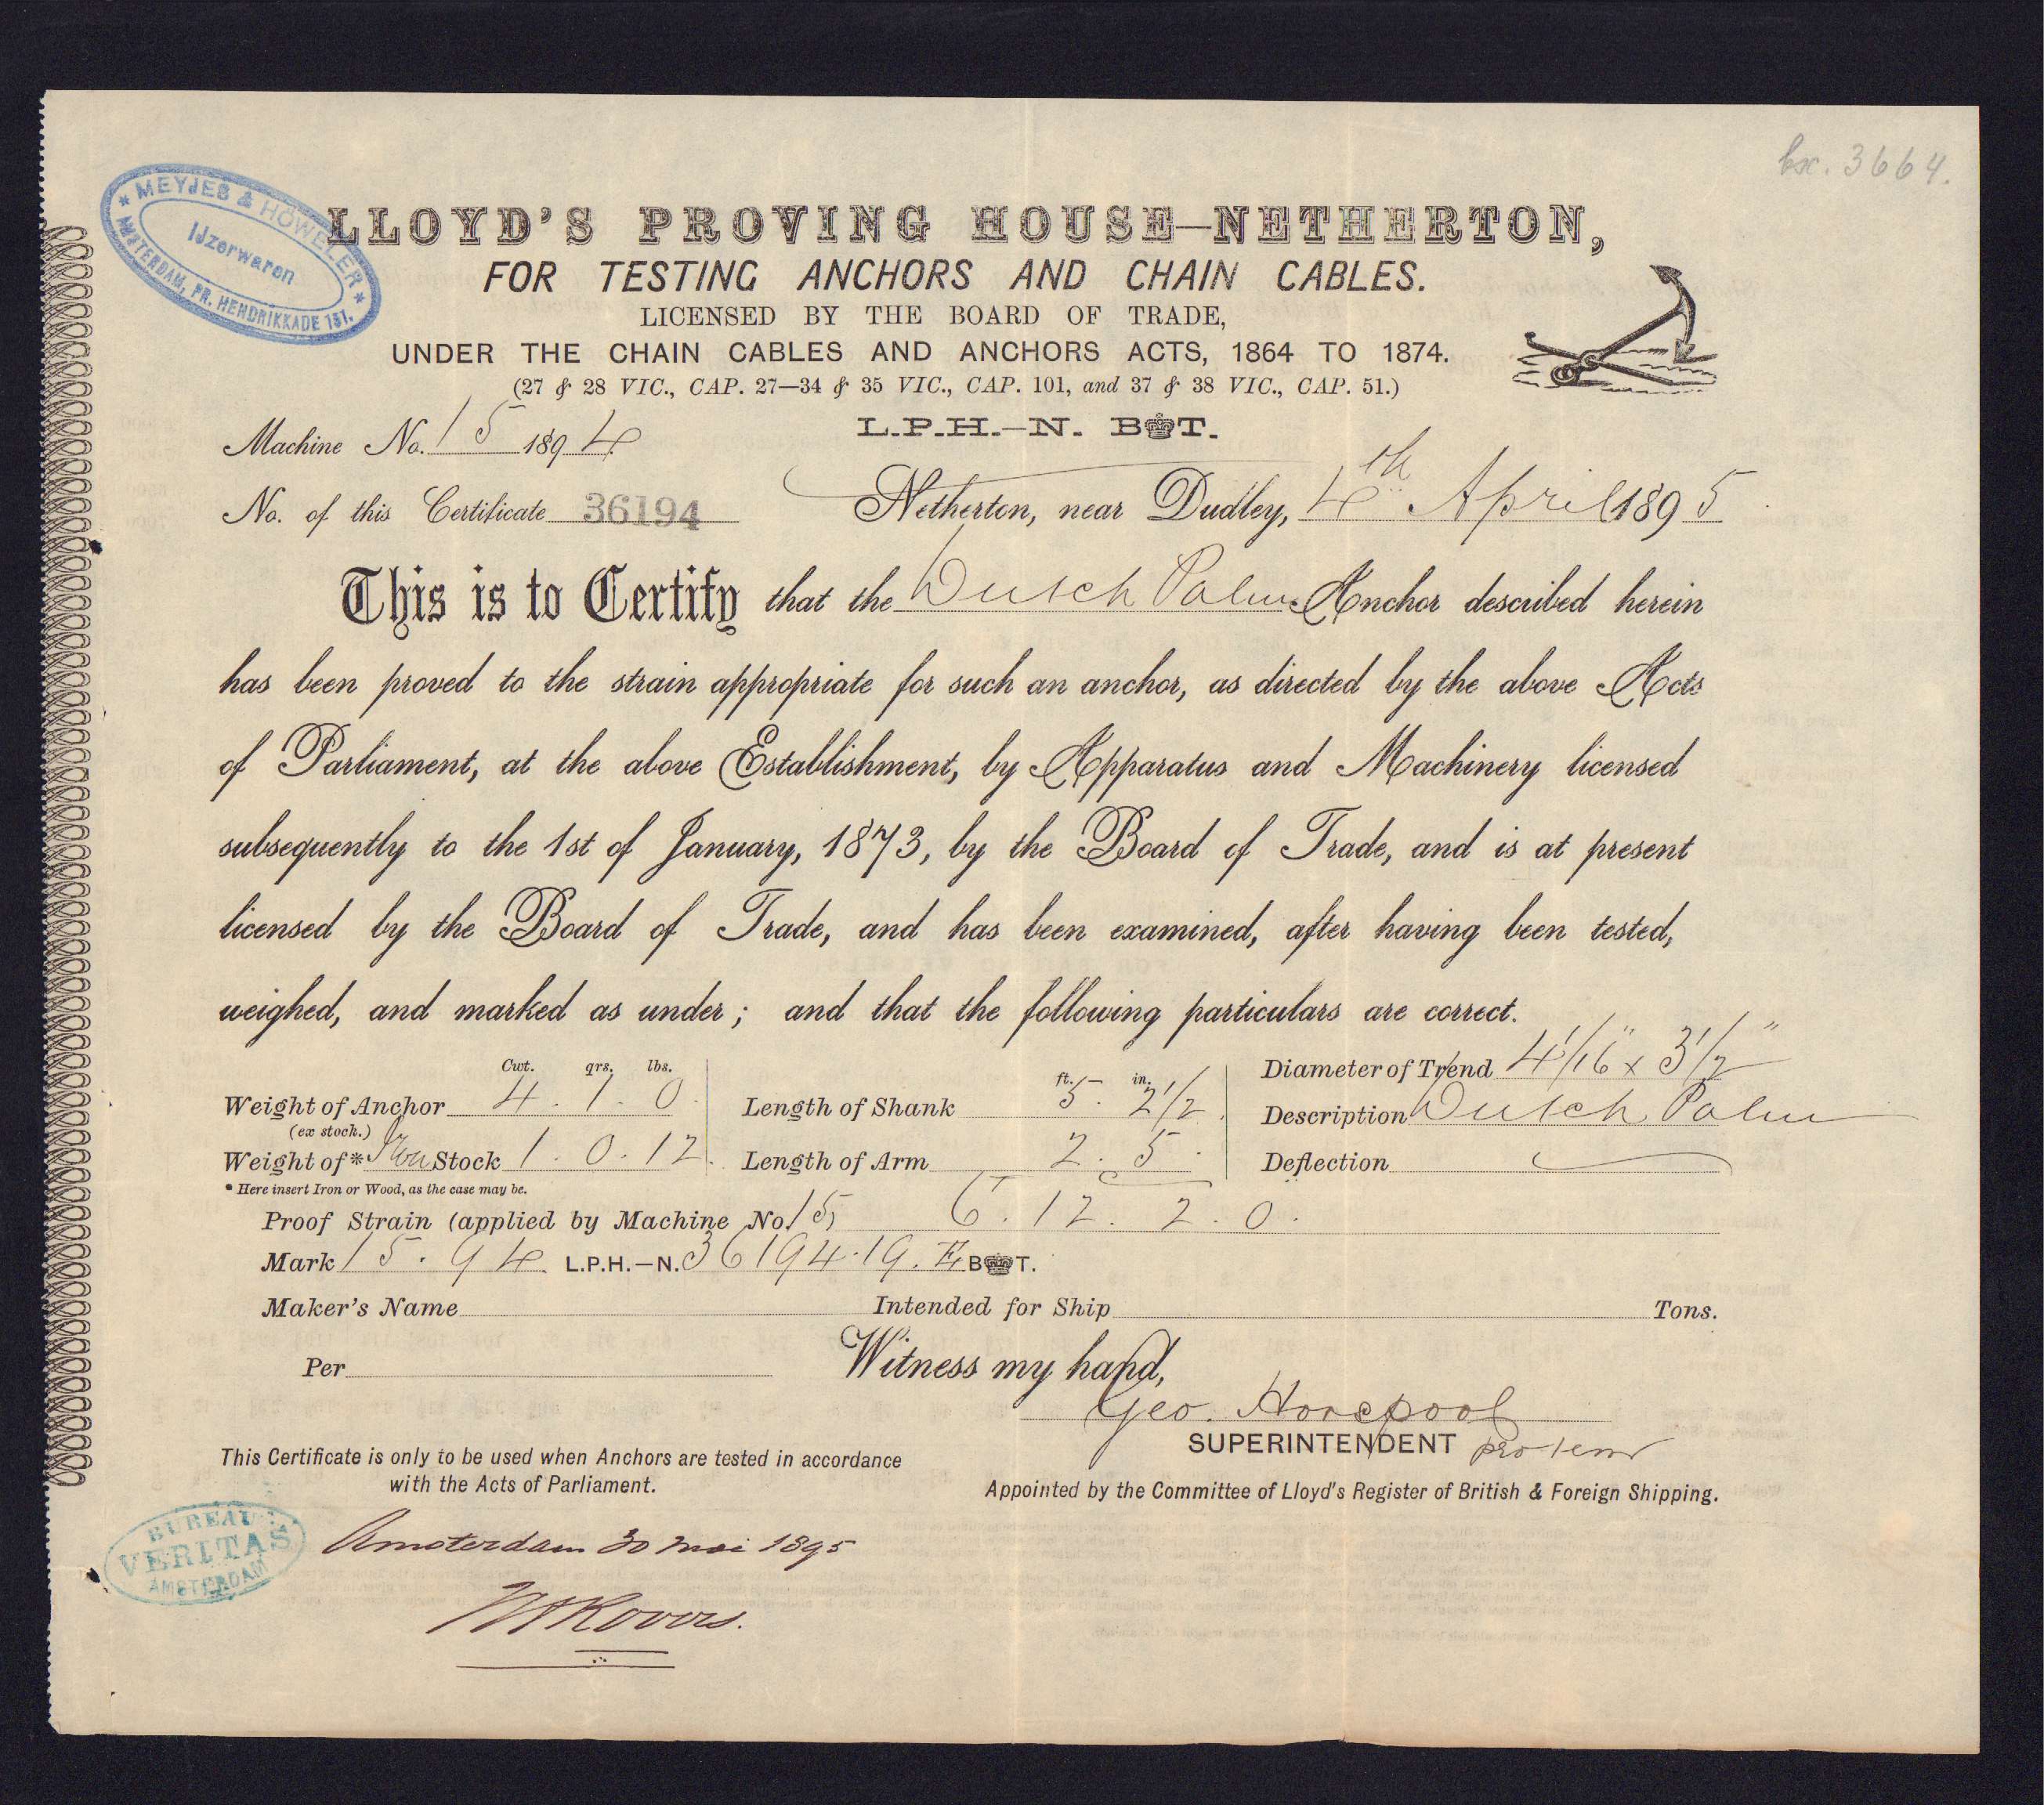 kx. 3664.
* MEYJES & HÖWELER *
IJzerwaren
AMSTERDAM, PR. HENDRIKKADE 151.
LLOYD'S PROVING HOUSE—NETHERTON,
FOR TESTING ANCHORS AND CHAIN CABLES.
LICENSED BY THE BOARD OF TRADE,
UNDER THE CHAIN CABLES AND ANCHORS ACTS, 1864 TO 1874.
(27 & 28 VIC., CAP. 27—34 & 35 VIC., CAP. 101, and 37 & 38 VIC., CAP. 51.)
L.P.H.—N. B T.
Machine No. 15 1894
No. of this Certificate 36194 Netherton, near Dudley, 4th April 1895
This is to Certify that the Dutch Palm Anchor described herein
has been proved to the strain appropriate for such an anchor, as directed by the above Acts
of Parliament, at the above Establishment, by Apparatus and Machinery licensed
subsequently to the 1st of January, 1873, by the Board of Trade, and is at present
licensed by the Board of Trade, and has been examined, after having been tested,
weighed, and marked as under; and that the following particulars are correct.
Cwt. qrs. lbs.
Weight of Anchor 4. 1. 0.
(ex stock.)
Weight of * Iron Stock 1. 0. 12.
* Here insert Iron or Wood, as the case may be.
ft. in.
Length of Shank 5. 2 1/2
Length of Arm 2. 5.
Diameter of Trend 4 1/16" x 3 1/2"
Description Dutch Palm
Deflection
Proof Strain (applied by Machine No. 15) 6. 12. 2. 0.
Mark 15. 94. L.P.H.—N. 36194. 19. B T.
Maker's Name Intended for Ship Tons.
Per Witness my hand,
Geo. Horepool
SUPERINTENDENT pro tem
Appointed by the Committee of Lloyd's Register of British & Foreign Shipping.
This Certificate is only to be used when Anchors are tested in accordance
with the Acts of Parliament.
BUREAU
VERITAS
AMSTERDAM
Amsterdam 30 mei 1895